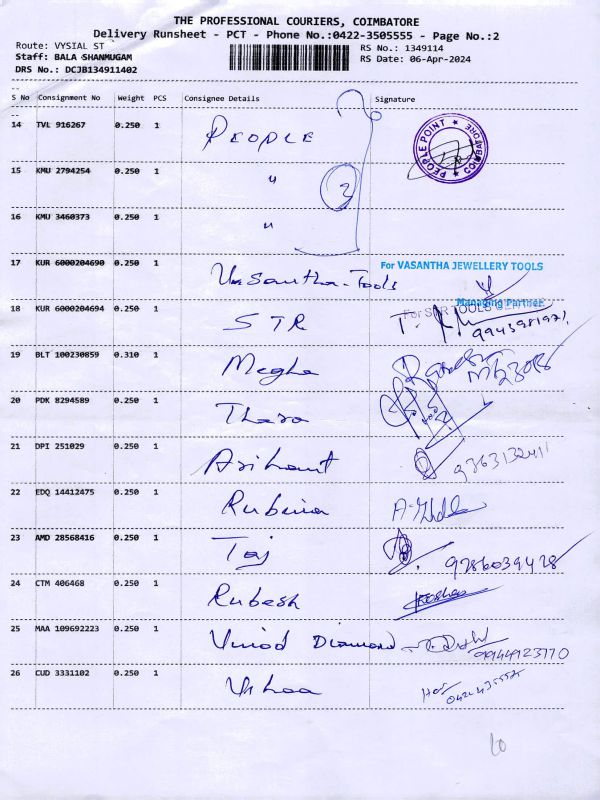 THE PROFESSIONAL COURIERS, COIMBATORE
Delivery Runsheet - PCT - Phone No.:0422-3505555 - Page No.:2
Route: VYSIAL ST RS No.: 1349114
Staff: BALA SHANMUGAM RS Date: 06-Apr-2024
DRS No.: DCJB134911402
S No Consignment No Weight PCS Consignee Details Signature
14 TVL 916267 0.250 1 PEOPLE PEOPLE POINT COIMBATORE
15 KMU 2794254 0.250 1 "
16 KMU 3460373 0.250 1 "
17 KUR 6000204690 0.250 1 Vasantha-Tools For VASANTHA JEWELLERY TOOLS
Managing Partner
18 KUR 6000204694 0.250 1 STR
19 BLT 100230859 0.310 1 Megha
20 PDK 8294589 0.250 1 Thara
21 DPI 251029 0.250 1 Arihant 9363132411
22 EDQ 14412475 0.250 1 Rubeina
23 AMD 28568416 0.250 1 Taj 9286039428
24 CTM 406468 0.250 1 Rubesh
25 MAA 109692223 0.250 1 Vinod Diamond 9944923770
26 CUD 3331102 0.250 1